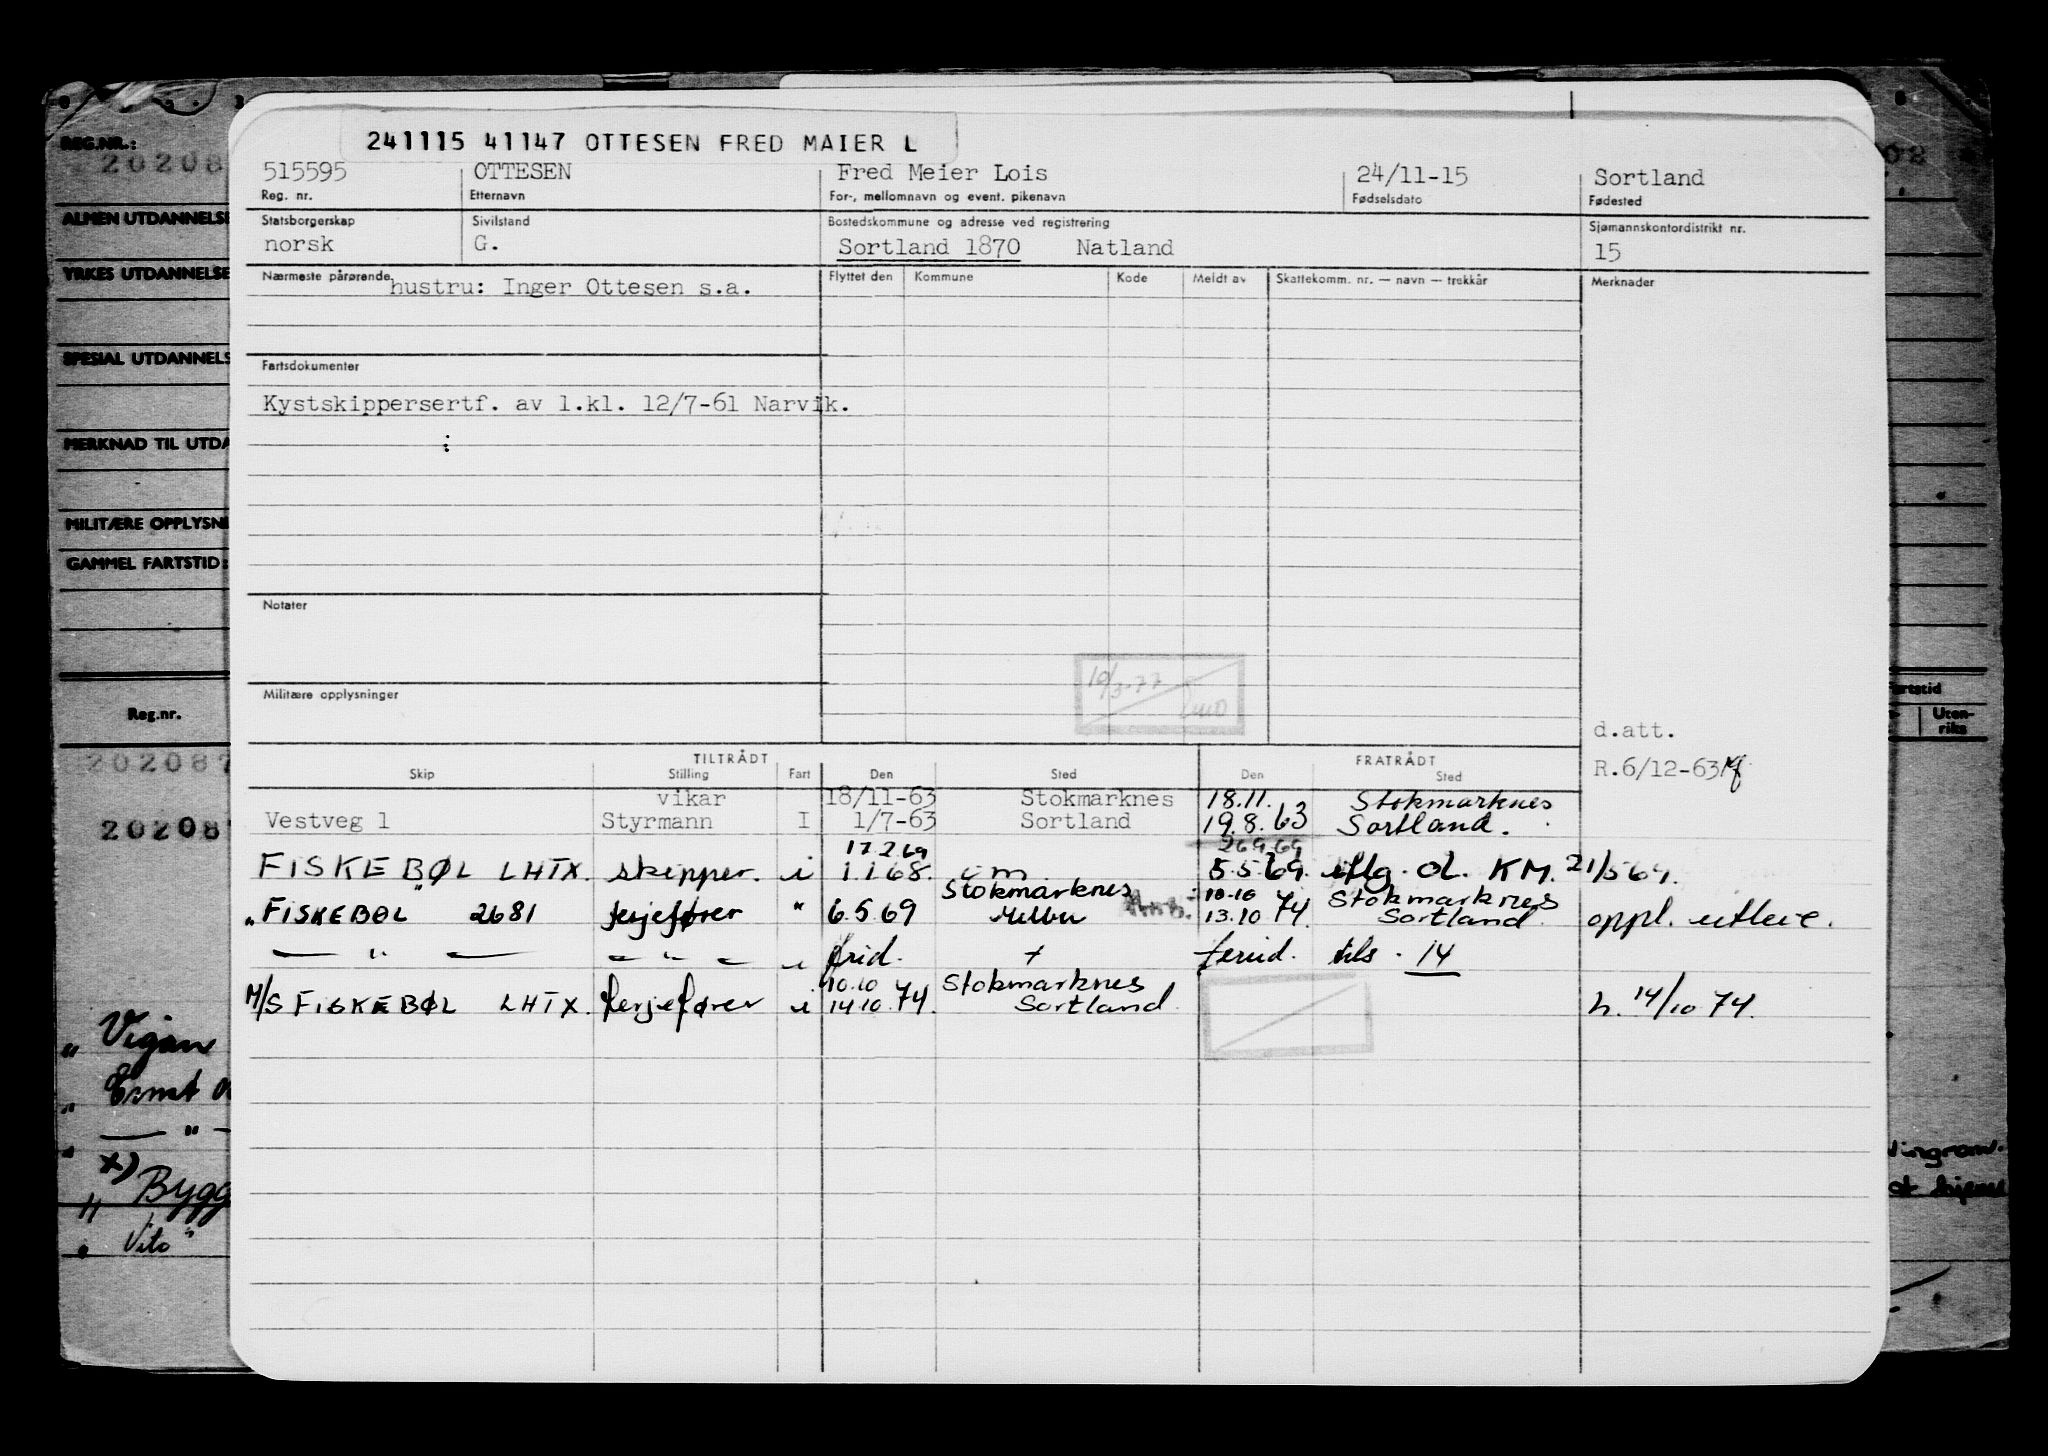 241115 41147 OTTESEN FRED MAIER L
515595 OTTESEN Fred Meier Lois 24/11-15 Sortland
Reg. nr. Etternavn For-, mellomnavn og event. pikenavn Fødselsdato Fødested
Statsborgerskap Sivilstand Bostedskommune og adresse ved registrering Sjømannskontordistrikt nr.
norsk G. Sortland 1870 Natland 15
Nærmeste pårørende hustru: Inger Ottesen s.a. Flyttet den Kommune Kode Meldt av Skattekomm. nr. — navn — trekkår Merknader
Fartsdokumenter
Kystskippersertf. av 1.kl. 12/7-61 Narvik.
Notater
19/3-77
Militære opplysninger
d.att.
TILTRÅDT FRATRÅDT
Skip Stilling Fart Den Sted Den Sted R.6/12-63
vikar 18/11-63 Stokmarknes 18.11. Stokmarknes
Vestveg 1 Styrmann I 1/7-63 Sortland 19.8.63 Sortland.
17.2.69 26969
FISKEBØL LHTX. skipper. i 1.1.68. om 5.5.69. iflg. ol. KM. 21/5 69.
Stokmarknes 10.10 Stokmarknes
"FISKEBØL" 2681 ferjefører " 6.5.69 Melbu 13.10 74. Sortland oppl. utleie.
— " — — " — i frid. + ferid. tils. 14
10.10 Stokmarknes
M/S FISKEBØL LHTX. ferjefører i 14.10.74. Sortland h. 14/10 74.
REG.NR.:
202087
ALMEN UTDANNELSE
YRKES UTDANNELSE
SPESIAL UTDANNELS
MERKNAD TIL UTDA
MILITÆRE OPPLYSNI
GAMMEL FARTSTID:
Reg.nr.
202087
20208
" Vigan
— " —
x)
" Bygg
" Vito"
Uten-
riks